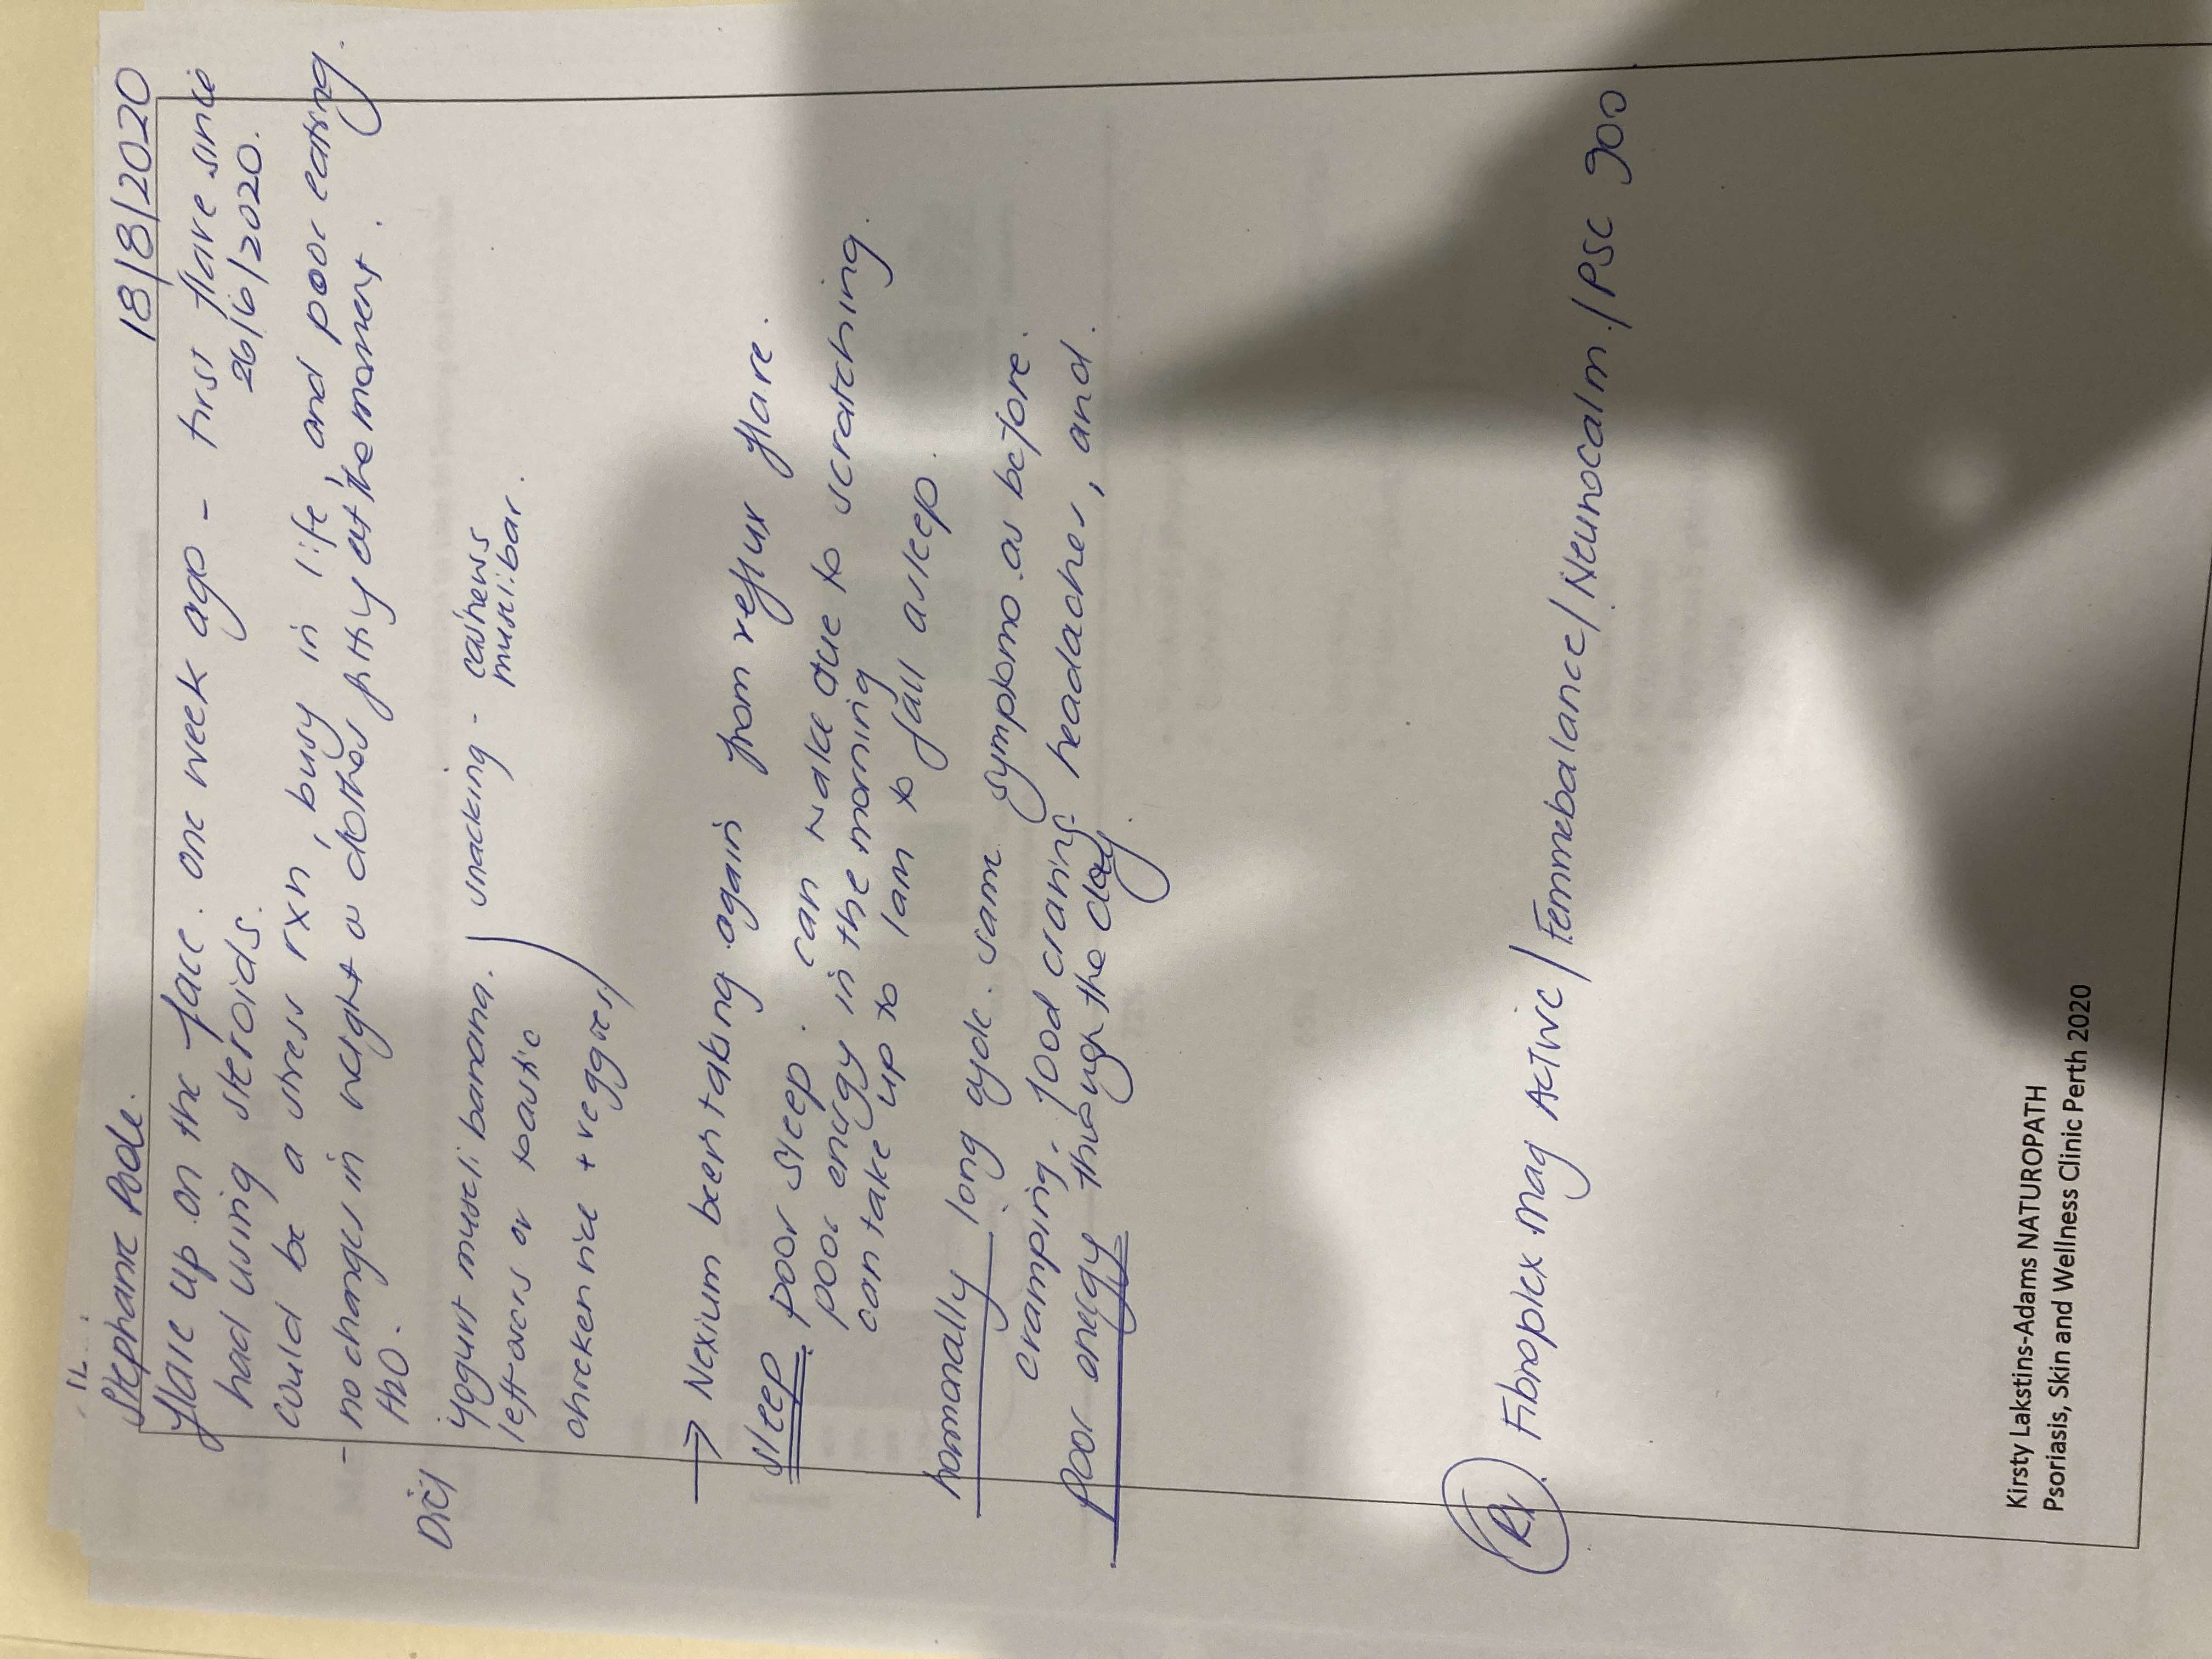 Stephanie Poole. 18/8/2020
flare up on the face. one week ago - first flare since
had using steroids. 26/6/2020.
could be a stress rxn, busy in life, and poor eating.
- no changes in weight or clothes fitting at the moment.
H2O.
Diet yogurt muesli banana. snacking - cashews
left-overs or toastie muesli bar.
chicken rice + veggies
→ Nexium been taking again from reflux flare.
sleep poor sleep. can wake due to scratching
poor energy in the morning
can take up to 1am to fall asleep.
hormonally long cycle. same symptoms as before.
cramping. food craving headaches, and
poor energy through the day.
Rx Fibroplex mag Active / Femmebalance / Neurocalm / PSC 900
Kirsty Lakstins-Adams NATUROPATH
Psoriasis, Skin and Wellness Clinic Perth 2020